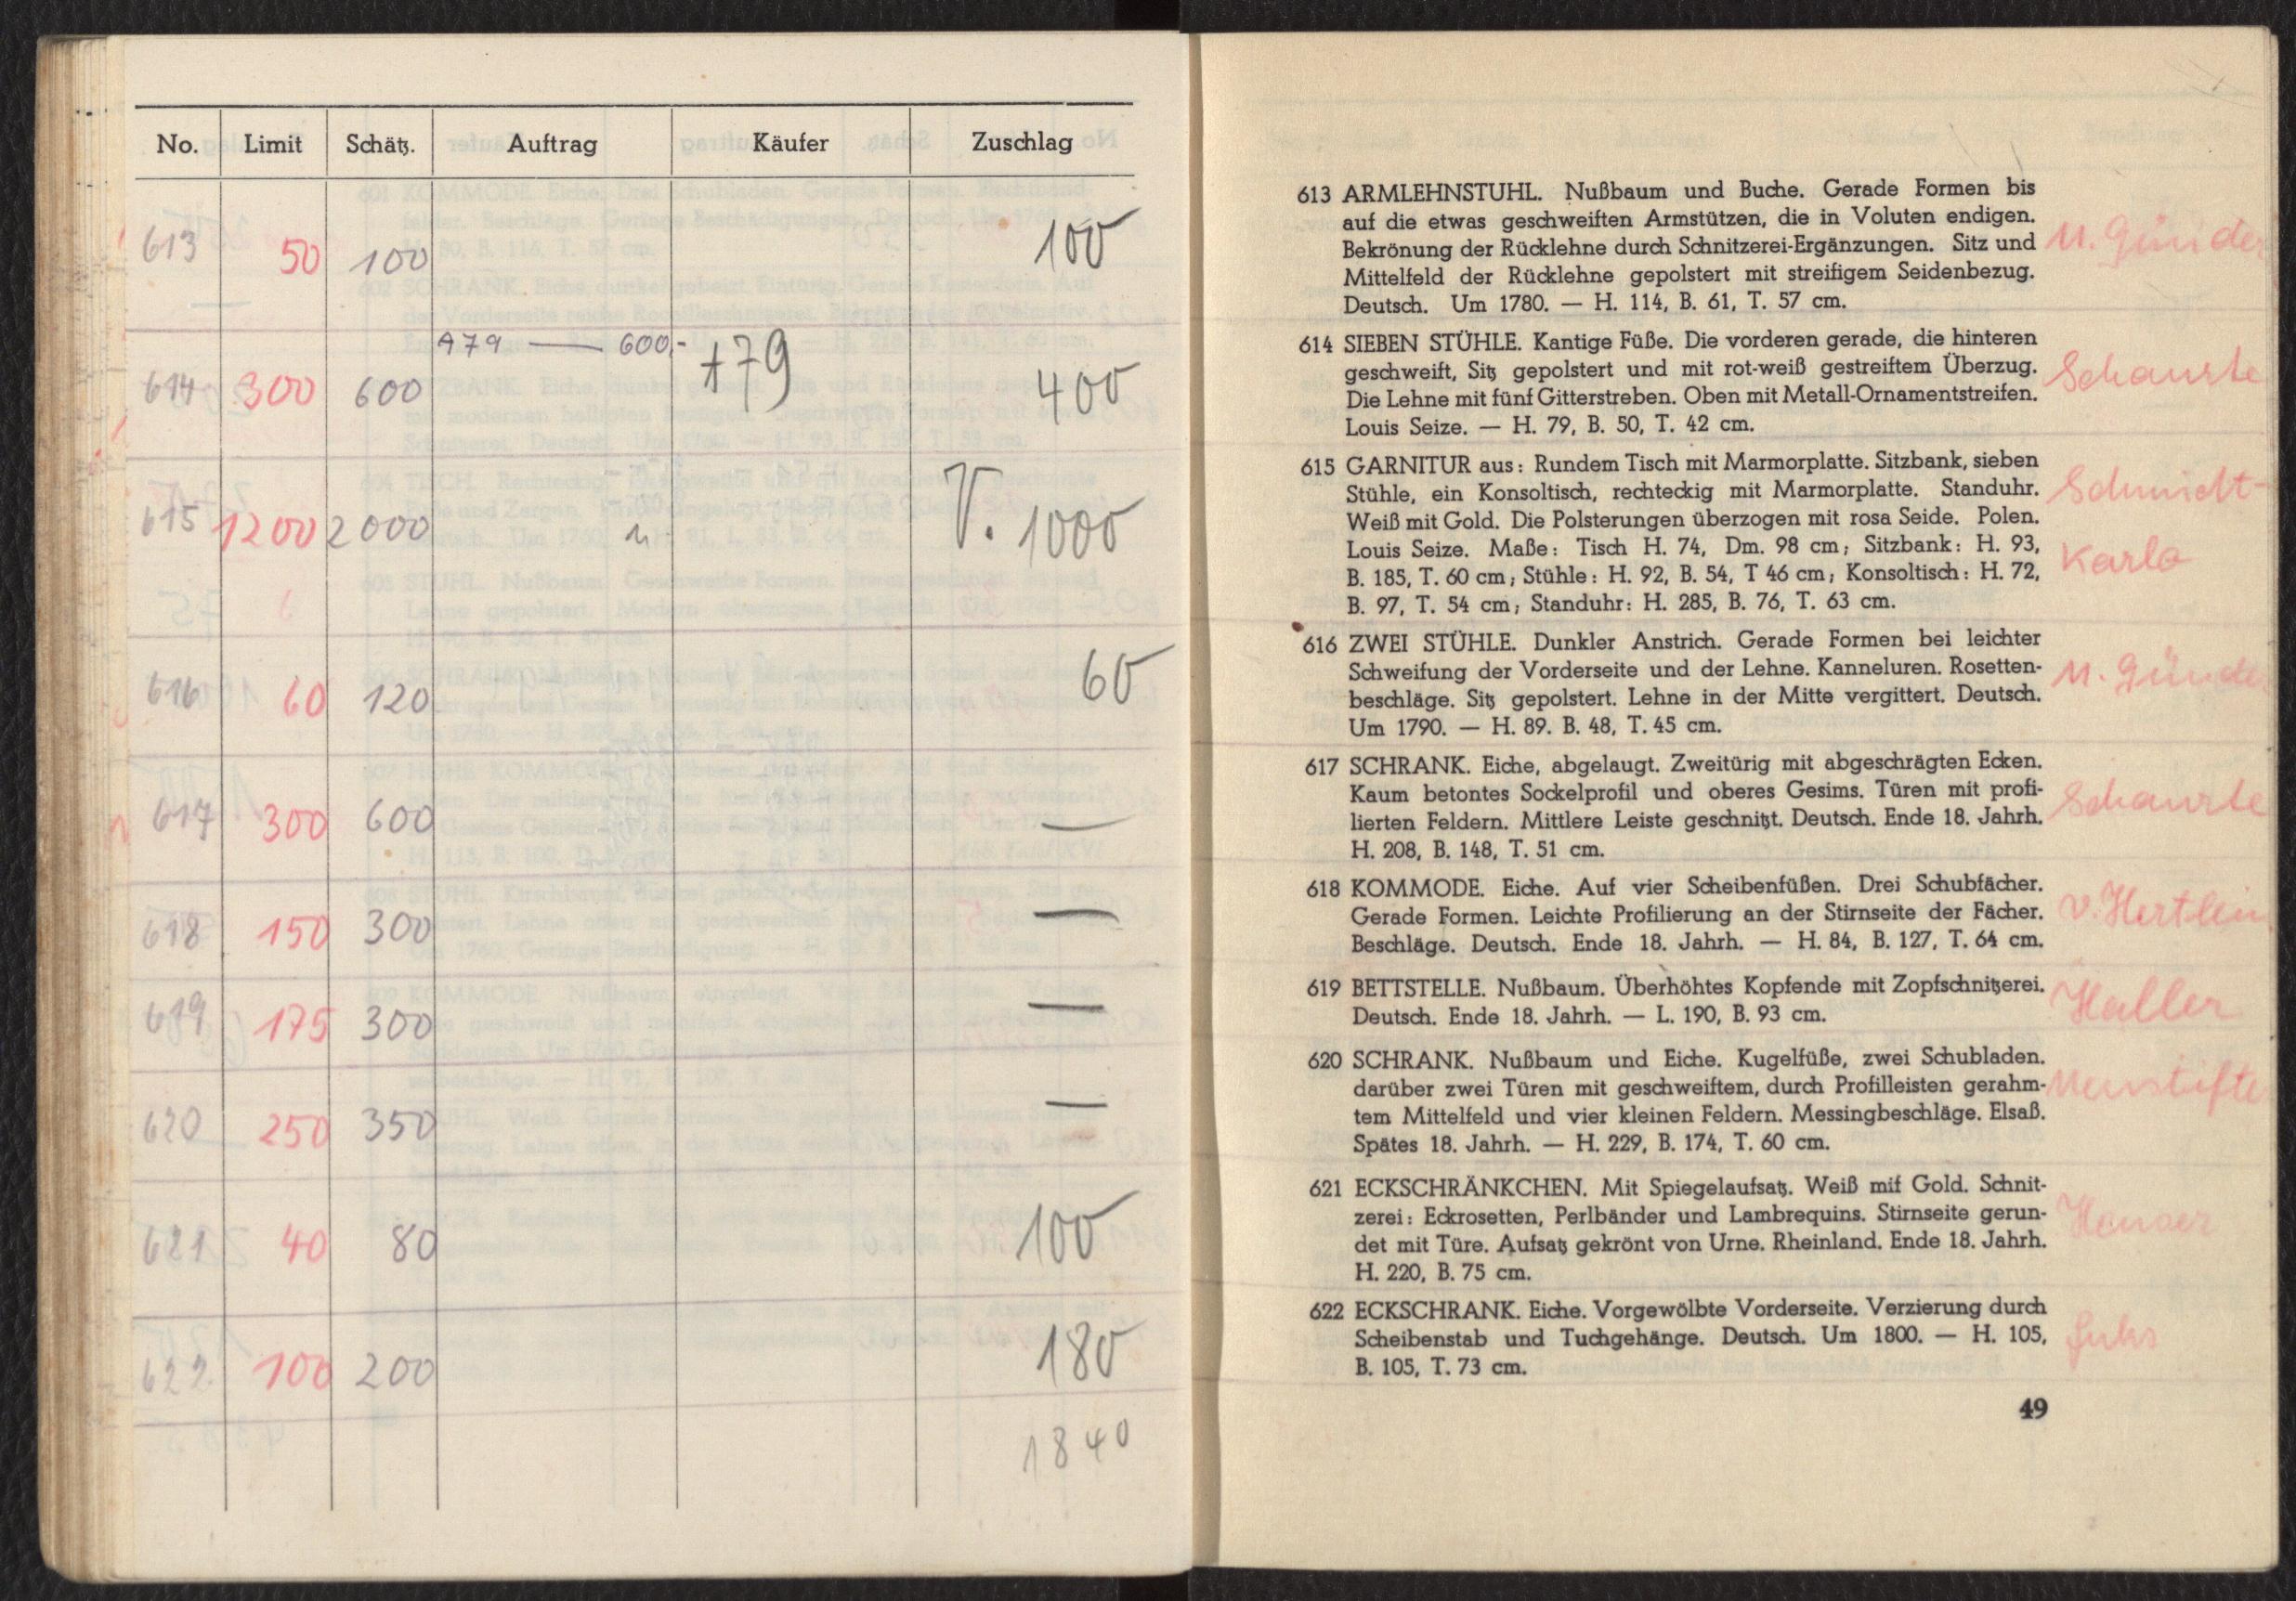 No. Limit Schätz. Auftrag Käufer Zuschlag
613 50 100 100
979 — 600,-
614 300 600 +79 400
615 1200 2000 V. 1000
616 60 120 60
617 300 600 —
618 150 300 —
619 175 300 —
620 250 350 —
621 40 80 100
622. 100 200 180
1840
613 ARMLEHNSTUHL. Nußbaum und Buche. Gerade Formen bis
auf die etwas geschweiften Armstützen, die in Voluten endigen.
Bekrönung der Rücklehne durch Schnitzerei-Ergänzungen. Sitz und
Mittelfeld der Rücklehne gepolstert mit streifigem Seidenbezug.
Deutsch. Um 1780. — H. 114, B. 61, T. 57 cm.
614 SIEBEN STÜHLE. Kantige Füße. Die vorderen gerade, die hinteren
geschweift, Sitz gepolstert und mit rot-weiß gestreiftem Überzug.
Die Lehne mit fünf Gitterstreben. Oben mit Metall-Ornamentstreifen.
Louis Seize. — H. 79, B. 50, T. 42 cm.
Schaurte
615 GARNITUR aus: Rundem Tisch mit Marmorplatte. Sitzbank, sieben
Stühle, ein Konsoltisch, rechteckig mit Marmorplatte. Standuhr.
Weiß mit Gold. Die Polsterungen überzogen mit rosa Seide. Polen.
Louis Seize. Maße: Tisch H. 74, Dm. 98 cm; Sitzbank: H. 93,
B. 185, T. 60 cm; Stühle: H. 92, B. 54, T 46 cm; Konsoltisch: H. 72,
B. 97, T. 54 cm; Standuhr: H. 285, B. 76, T. 63 cm.
Schmidt-
Karlo
616 ZWEI STÜHLE. Dunkler Anstrich. Gerade Formen bei leichter
Schweifung der Vorderseite und der Lehne. Kanneluren. Rosetten-
beschläge. Sitz gepolstert. Lehne in der Mitte vergittert. Deutsch.
Um 1790. — H. 89. B. 48, T. 45 cm.
617 SCHRANK. Eiche, abgelaugt. Zweitürig mit abgeschrägten Ecken.
Kaum betontes Sockelprofil und oberes Gesims. Türen mit profi-
lierten Feldern. Mittlere Leiste geschnitzt. Deutsch. Ende 18. Jahrh.
H. 208, B. 148, T. 51 cm.
Schaurte
618 KOMMODE. Eiche. Auf vier Scheibenfüßen. Drei Schubfächer.
Gerade Formen. Leichte Profilierung an der Stirnseite der Fächer.
Beschläge. Deutsch. Ende 18. Jahrh. — H. 84, B. 127, T. 64 cm.
v. Hertlein
619 BETTSTELLE. Nußbaum. Überhöhtes Kopfende mit Zopfschnitzerei.
Deutsch. Ende 18. Jahrh. — L. 190, B. 93 cm.
Haller
620 SCHRANK. Nußbaum und Eiche. Kugelfüße, zwei Schubladen.
darüber zwei Türen mit geschweiftem, durch Profilleisten gerahm-
tem Mittelfeld und vier kleinen Feldern. Messingbeschläge. Elsaß.
Spätes 18. Jahrh. — H. 229, B. 174, T. 60 cm.
621 ECKSCHRÄNKCHEN. Mit Spiegelaufsatz. Weiß mif Gold. Schnit-
zerei: Eckrosetten, Perlbänder und Lambrequins. Stirnseite gerun-
det mit Türe. Aufsatz gekrönt von Urne. Rheinland. Ende 18. Jahrh.
H. 220, B. 75 cm.
622 ECKSCHRANK. Eiche. Vorgewölbte Vorderseite. Verzierung durch
Scheibenstab und Tuchgehänge. Deutsch. Um 1800. — H. 105,
B. 105, T. 73 cm.
49